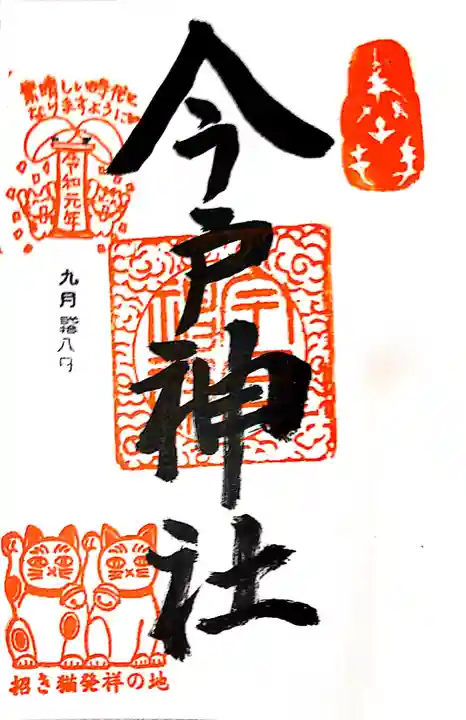 今戸神社
素晴しい時代と
なりますように
令和元年
九月弐拾八日
招き猫発祥の地